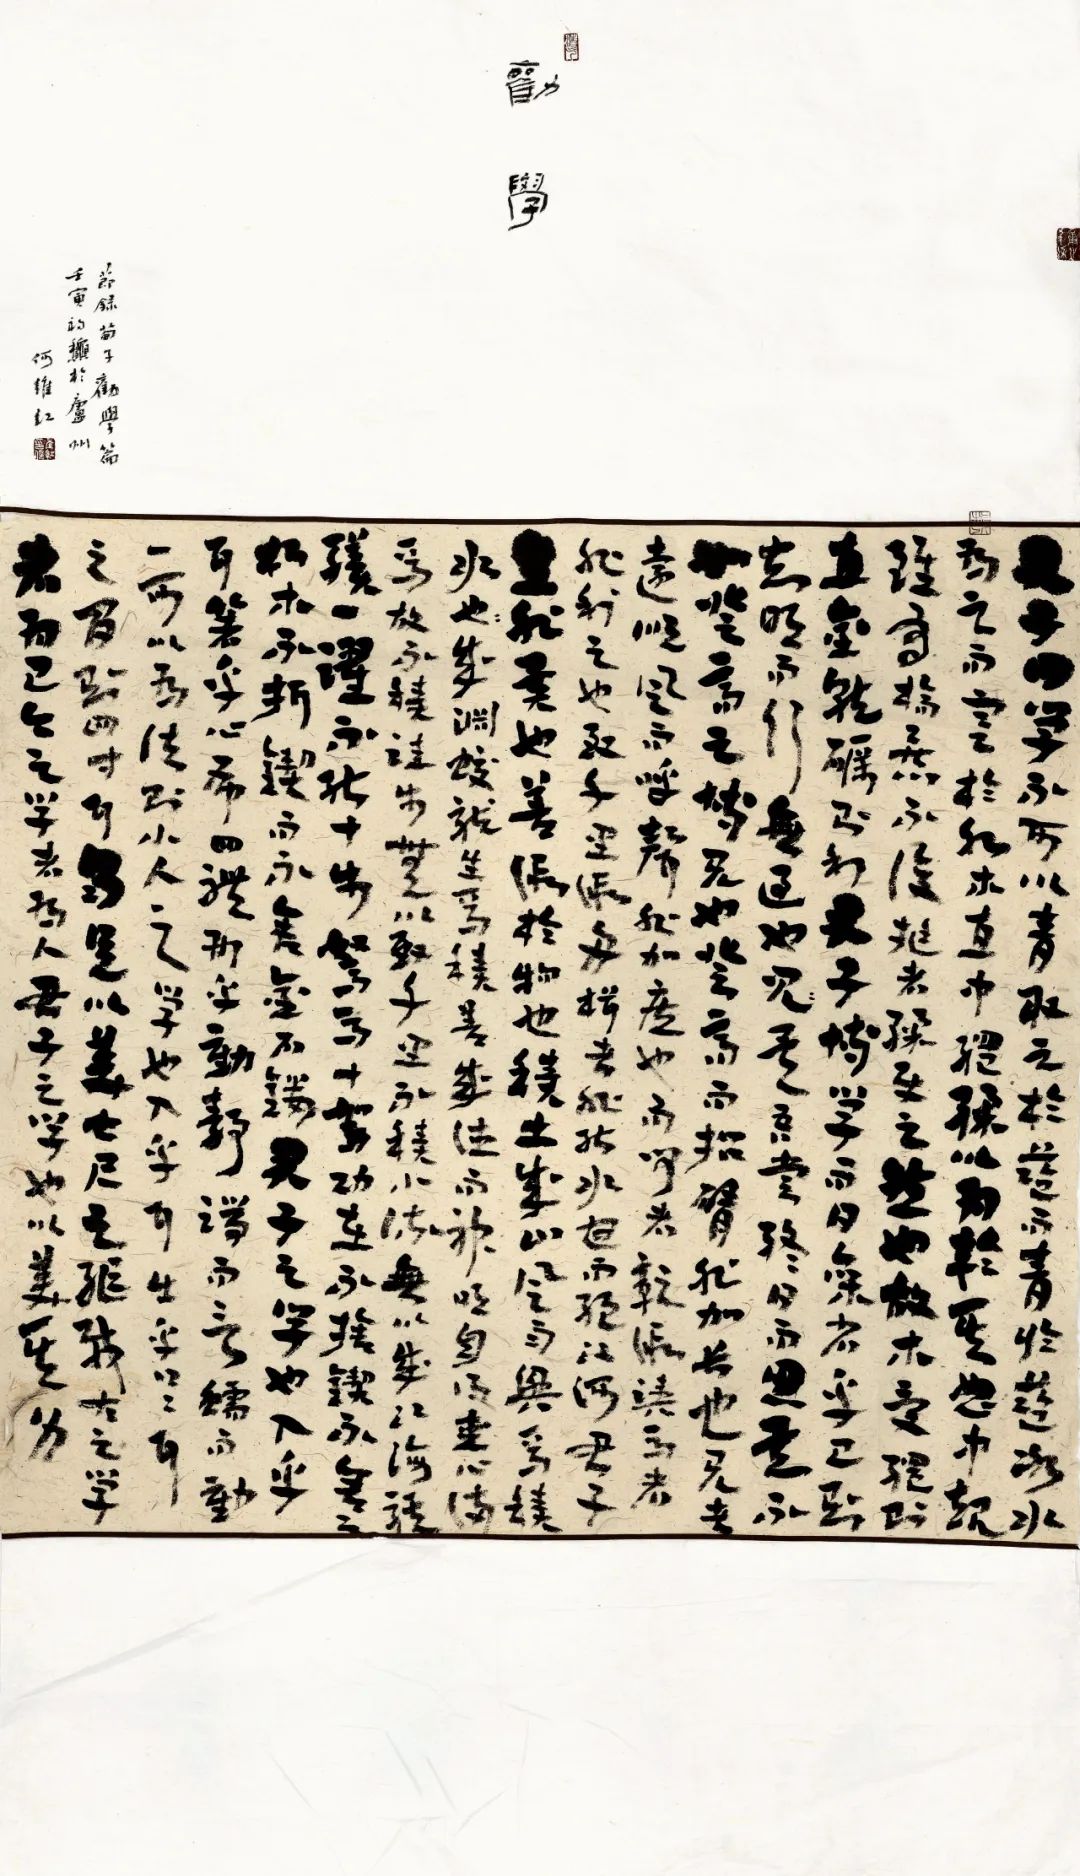 勸學
節錄荀子勸學篇
壬寅初龝於廬州
何維紅
君子曰學不可以青取之於藍而青於藍冰水
為之而寒於水木直中繩輮以為輪其曲中規
雖有槁暴不復挺者輮使之然也故木受繩則
直金就礪則利君子博學而日參省乎己則
知明而行無過也矣吾嘗終日而思矣不
如登之高之博見也登高而招臂非加長也見者
遠順風而呼聲非加疾也而聞者彰假輿馬者
非利之也致千里假舟楫者非能水也而絕江河君子
生非異也善假於物也積土成山風雨興焉積
水也成淵蛟龍生焉積善成德而神明自得聖心備
焉故不積跬步無以致千里不積小流無以成江海騏
驥一躍不能十步駑馬十駕功在不捨鍥而舍之
朽木不折鍥而不舍金石鏤君子之學也入乎
耳箸乎心布四體形乎動靜端而言蝡而動
一可以為法則小人之學也入乎耳出乎口口耳
之間則四寸耳曷足以美七尺之軀哉古之學
者為己今之學者為人君子之學也以美其身